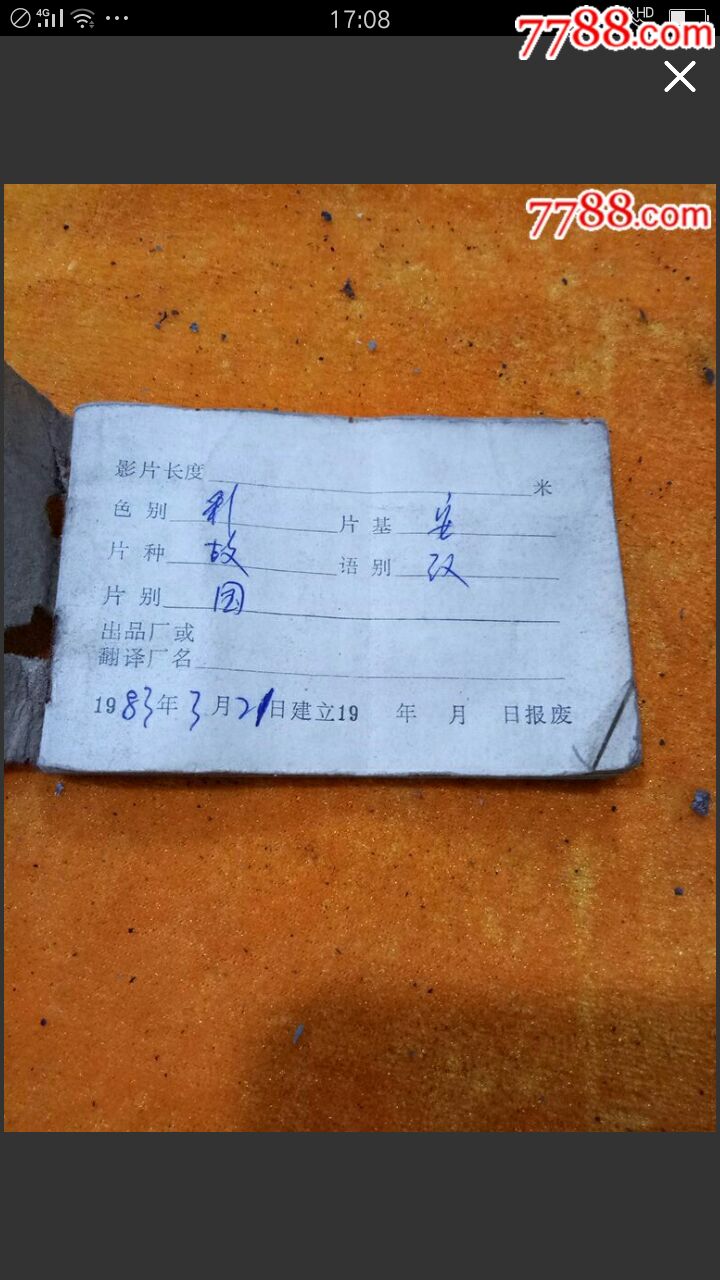 4G 17:08 HD
7788.com
7788.com
影片长度 米
色别 彩 片基 安
片种 故 语别 汉
片别 国
出品厂或
翻译厂名
1983年3月21日建立19 年 月 日报废